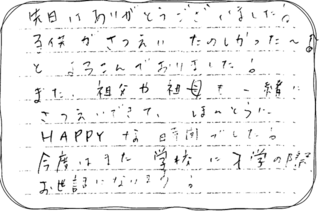 先日はありがとうございました!
子供がさつえいたのしかった〜!
とよろこんでおりました!
また、祖父や祖母も一緒に
さつえいできて、ほんとうに
HAPPYな時間でした!
今度はまた学校に入学の際
お世話になります!